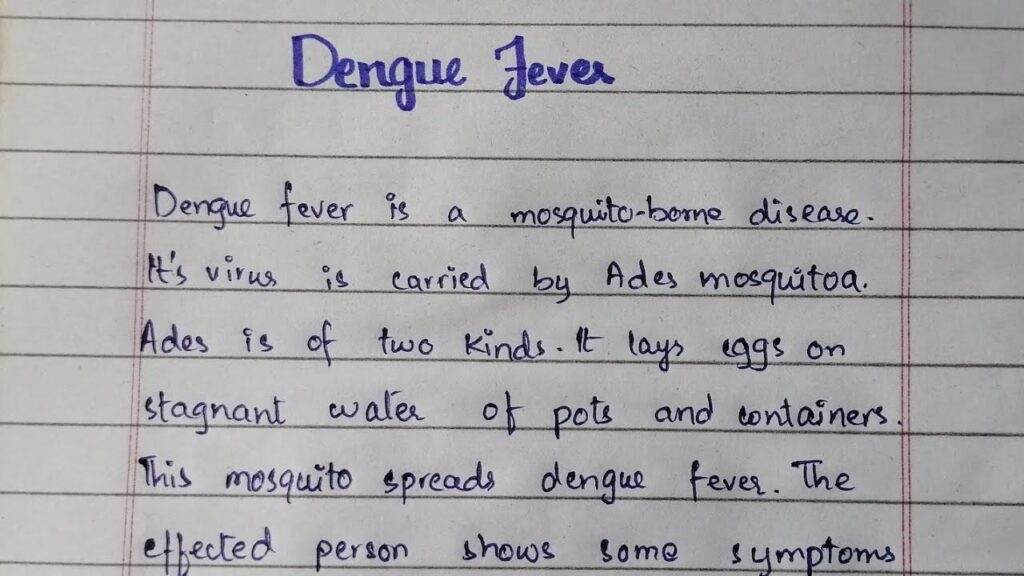 Dengue Fever
Dengue fever is a mosquito-borne disease.
It's virus is carried by Ades mosquitoa.
Ades is of two kinds. It lays eggs on
stagnant water of pots and containers.
This mosquito spreads dengue fever. The
effected person shows some symptoms